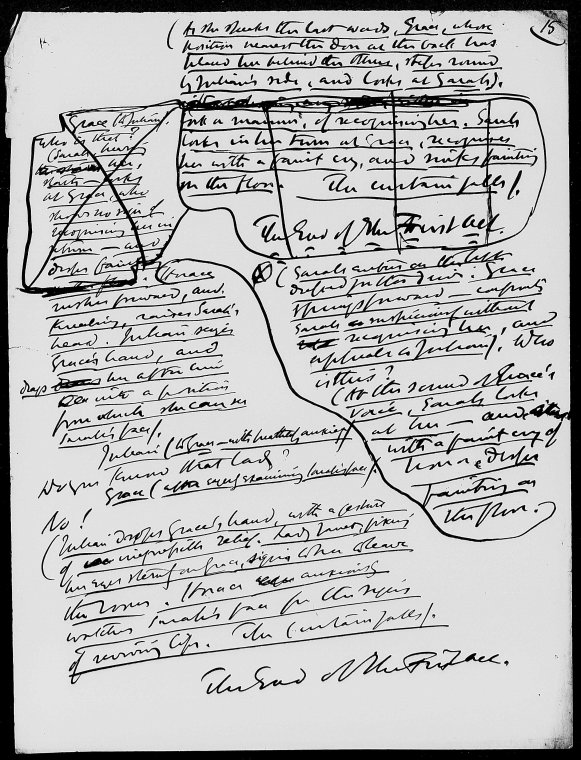 15
(As she speaks the last words, Grace, whose
position nearest the door at the back has
placed her behind the others, steps round
by Julian's side, and looks at Sarah).
for a manner, of recognising her. Sarah
looks in her turn at Grace, recognises
her with a faint cry, and sinks fainting
on the floor. The curtain falls).
The End of The First Act.
Grace (to Julian).
Who is that?
(Sarah hears
her,
starts — looks
at Grace, who
shows no sign of
recognising her in
return — and
drops faint
the floor. Horace
rushes forward, and,
kneeling, raises Sarah's
head. Julian seizes
Grace's hand, and
drags her after him
with a position
from which she can see
Sarah's face).
Julian (to Grace — with breathless anxiety)
Do you know that lady?
Grace (after eagerly examining Sarah's face).
No!
(Julian drops Grace's hand, with a gesture
of irrepressible relief. Lady Janet, fixing
her eyes sternly on Grace, signs to her to leave
the room. Horace anxiously
watches Sarah's face for the signs
of reviving life. The Curtain falls).
The End of The First Act.
(Sarah enters on the left
Grace
springs forward — confronts
Sarah suspiciously without
recognising her, and
appeals to Julian). Who
is this?
(At the sound of Grace's
voice, Sarah looks
at her — and
with a faint cry of
horror drops
fainting on
the floor.